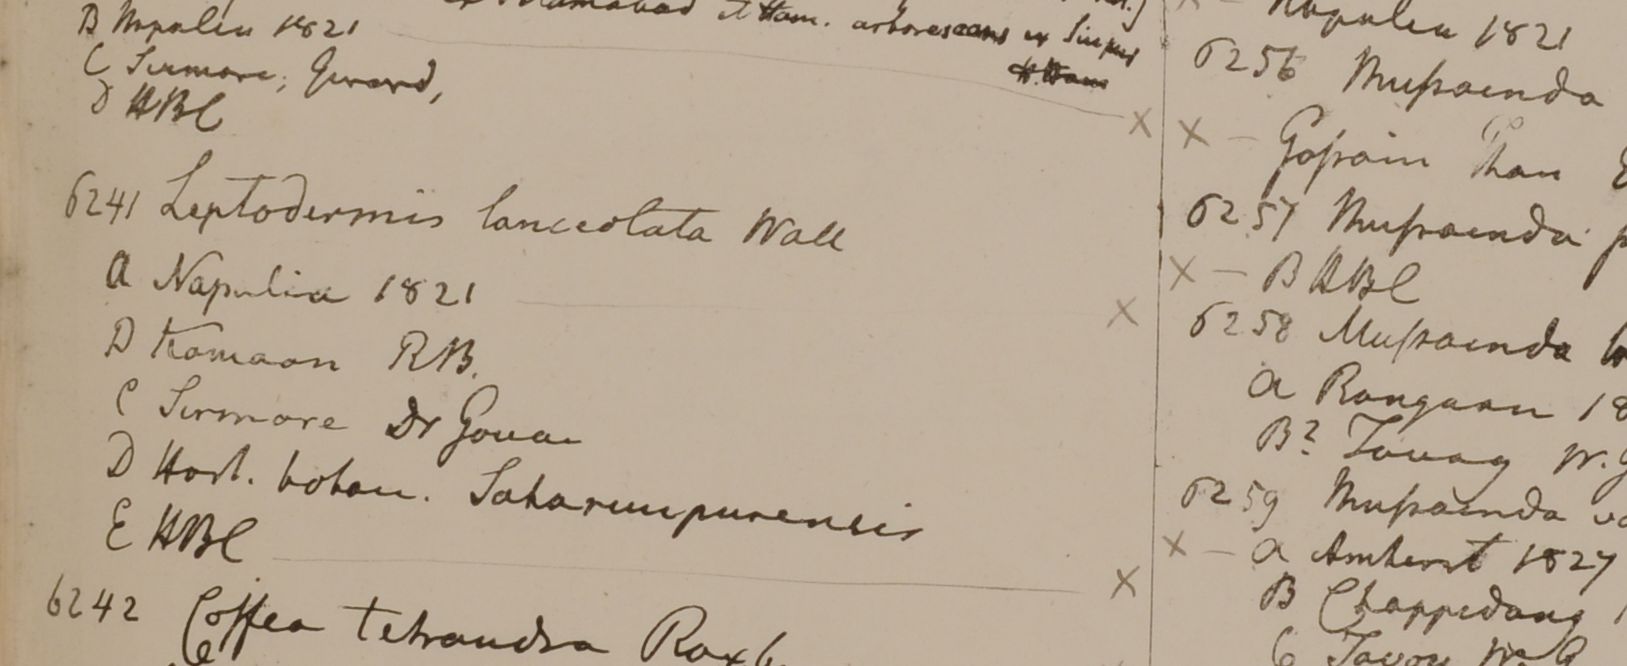 B Napalia 1821
C Sirmore, Gerard,
D HBC
arborescens
H. Ham
6241 Leptodermis lanceolata Wall
a Napalia 1821
B Kamaon RB.
C Sirmore Dr Govan
D Hort. botan. Saharunpurensis
E HBC
6242 Coffea tetrandra Roxb
Napalia 1821
6256 Mussaenda
Gossain Than
6257 Mussaenda
B HBC
6258 Mussaenda
a Rangoon
B? Tavoy W.G
6259 Mussaenda
a Amherst 1827
B Chappedong
C Tavoy W G